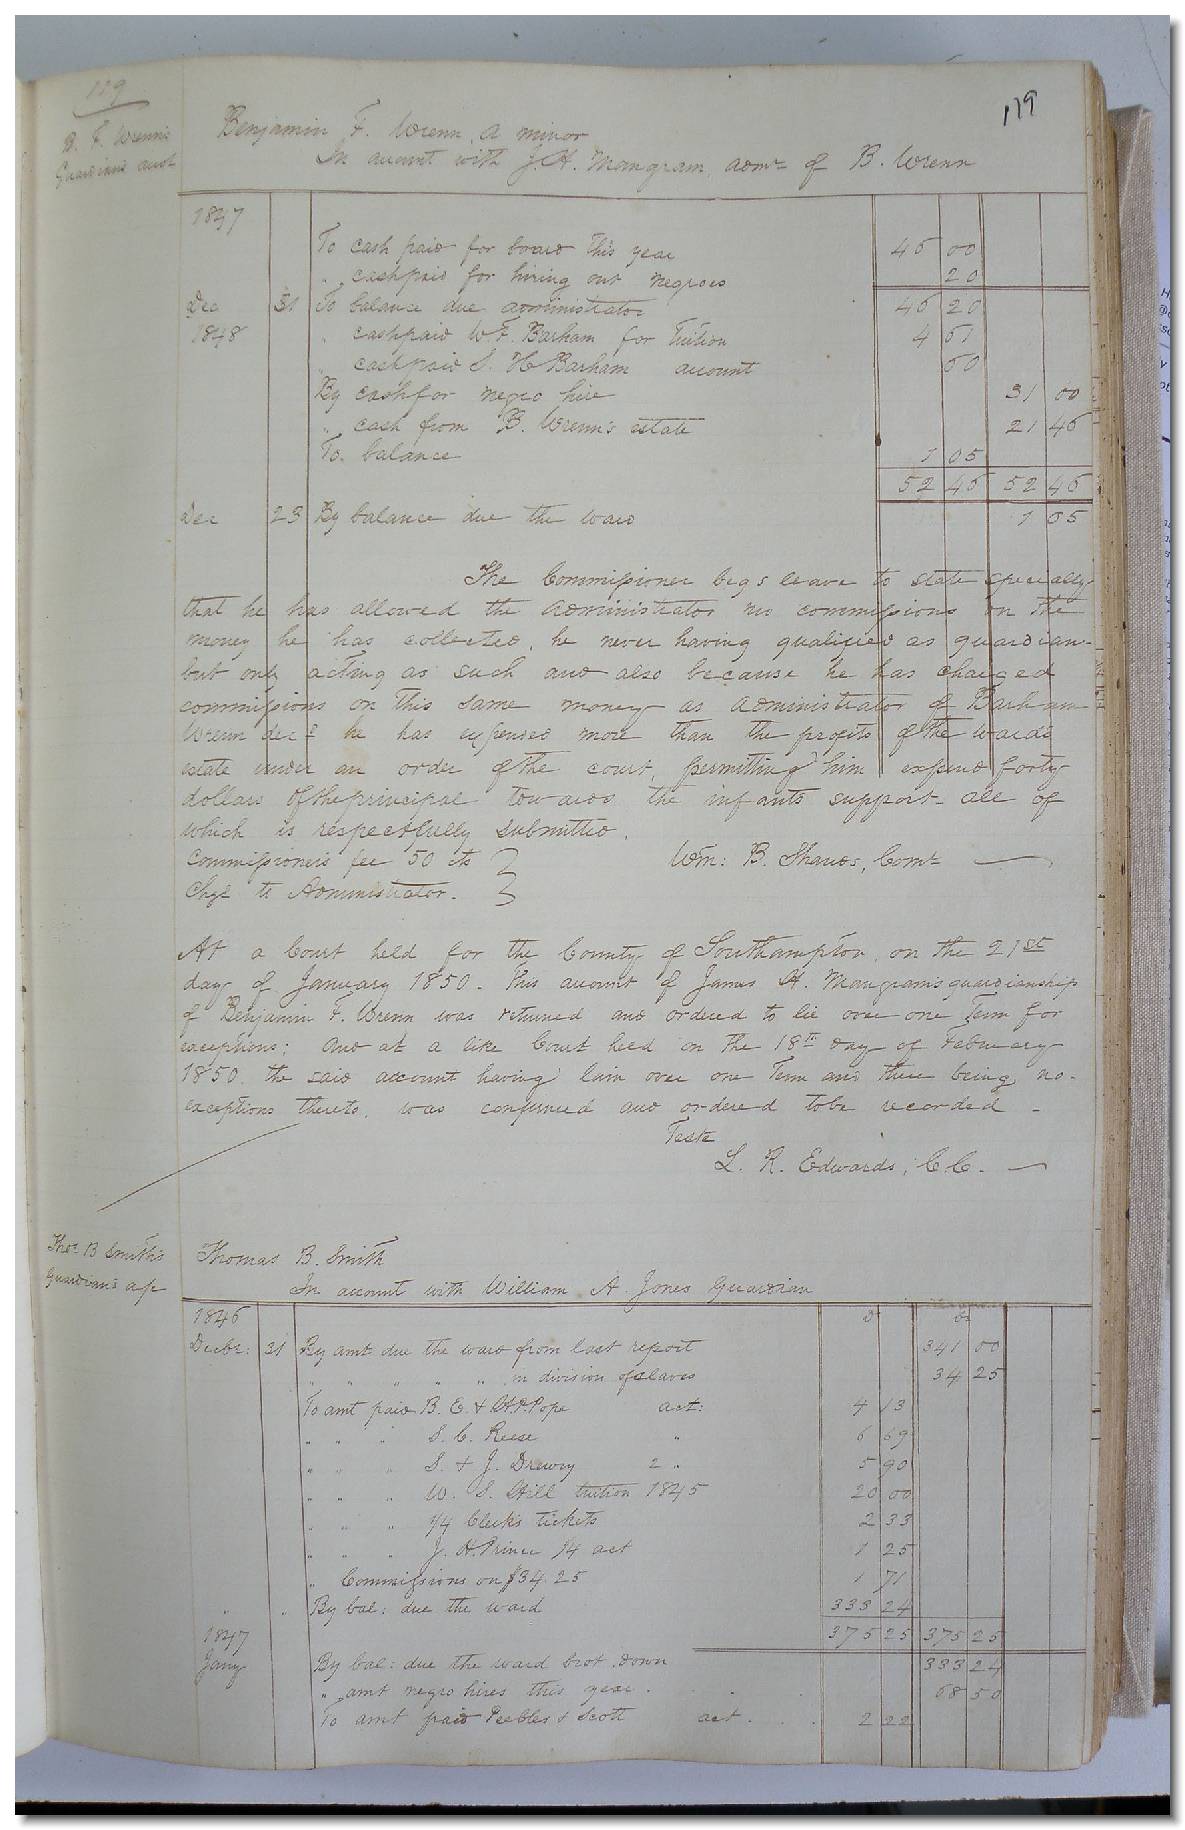 119
119
B. F. Wrenn's
Guardians acct
Benjamin F. Wrenn, a minor
In account with J. H. Mangram, admr of B. Wrenn
1847
To cash paid for board this year 46 00
" cash paid for hiring out negroes 20
Dec 31 To balance due administrator 46 20
1848 " cash paid W. F. Barham for Tuition 4 61
" cash paid S. H Barham account 60
By cash for negro hire 31 00
" cash from B. Wrenn's estate 21 46
To balance 1 05
52 46 52 46
Dec 23 By balance due the ward 1 05
The Commissioner begs leave to state specially
that he has allowed the administrator no commissions on the
money he has collected, he never having qualified as guardian-
but only acting as such and also because he has charged
commissions on this same money as administrator of Barham
Wrenn decd he has expended more than the profits of the ward's
estate under an order of the court, permitting him expend forty
dollars of the principal towards the infants support - all of
which is respectfully submitted.
Commissioner's fee 50 cts
Chgd to Administrator.
Wm: B. Shands, Comr
At a Court held for the County of Southampton, on the 21st
day of January 1850. This account of James H. Mangram's guardianship
of Benjamin F. Wrenn was returned and ordered to lie over one Term for
exceptions; And at a like Court held on the 18th day of February
1850. the said account having lain over one Term and there being no-
exceptions thereto, was confirmed and ordered to be recorded -
Teste
L. R. Edwards, C.C.
Thos B Smith's
Guardian's a/c
Thomas B. Smith
In account with William A. Jones Guardian
1846 Dr Cr
Decbr: 31 By amt due the ward from last report 341 00
" " " " " in division of slaves 34 25
To amt paid B. E. & H. P. Pope act: 4 13
" " " S. C. Reese " 6 69
" " " S. & J. Drewry 2 " 5 90
" " " W. S. Hill tuition 1845 20 00
" " " 1/4 Clerk's tickets 2 33
" " " J. H. Prince 1/4 act 1 25
" Commissions on $34.25 1 71
" " By bal: due the ward 333 24
375 25 375 25
1847
Jany By bal: due the ward brot. down 333 24
" amt negro hires this year . 68 50
To amt paid Peebles & Scott act . . 2 22